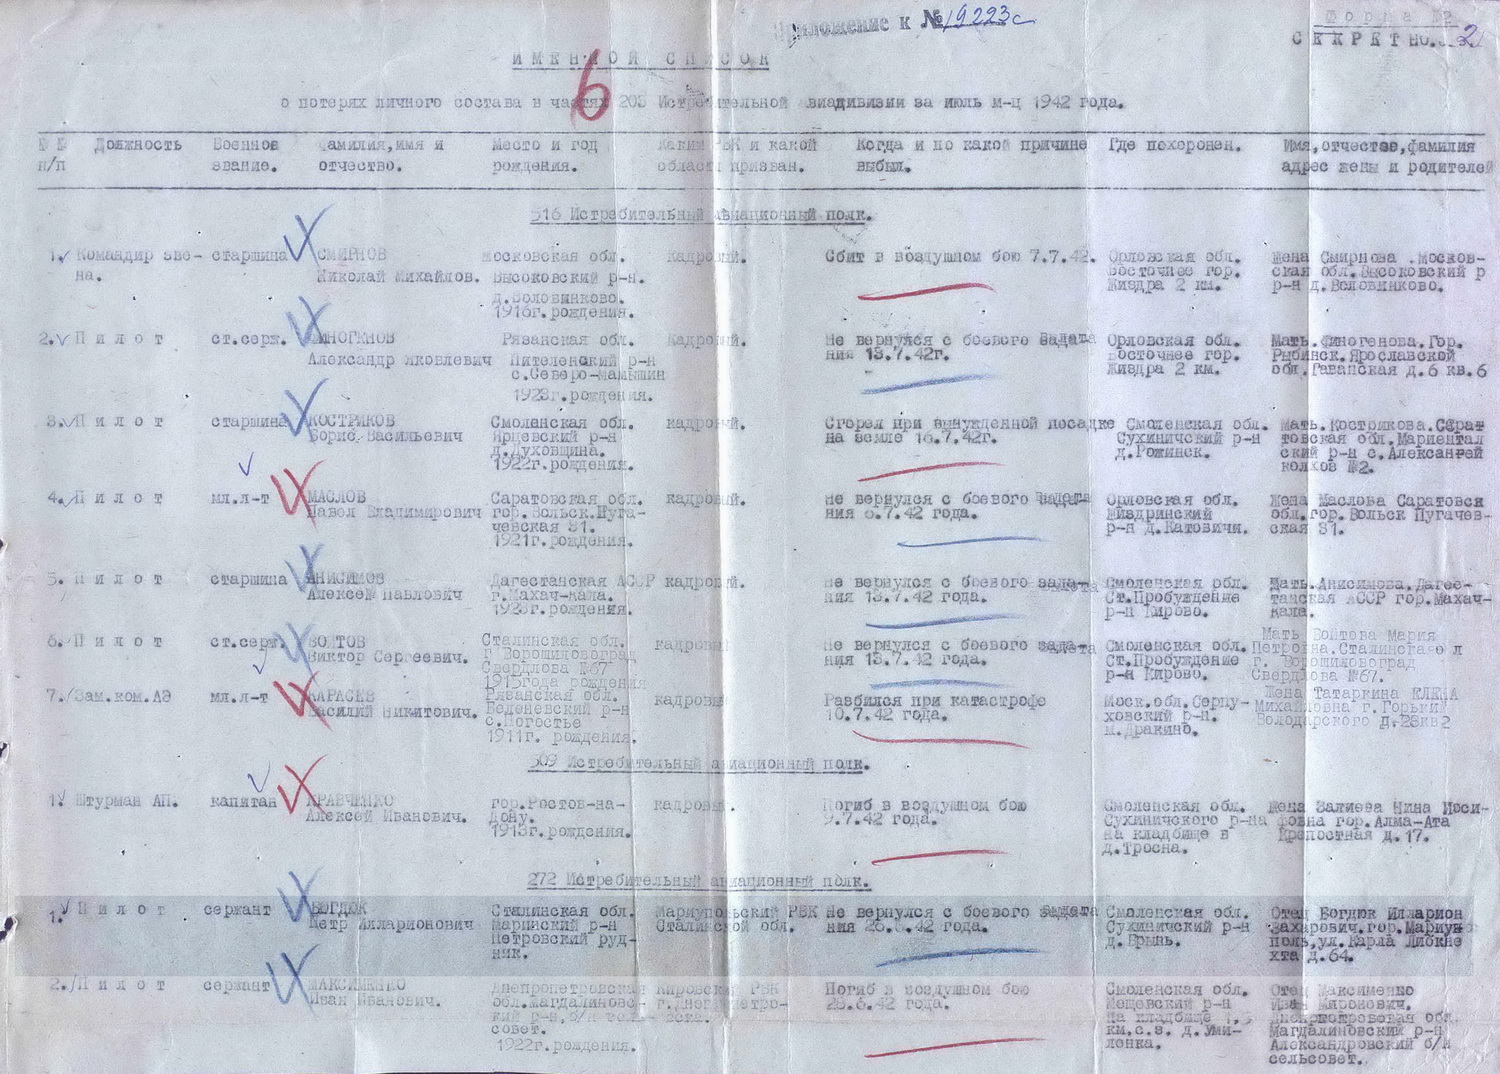 Приложение к № 19223с
Форма №2
СЕКРЕТНО.
2
ИМЕННОЙ СПИСОК
6
о потерях личного состава в частях 203 Истребительной авиадивизии за июль м-ц 1942 года.
№№ п/п
Должность
Военное звание.
Фамилия,имя и отчество.
Место и год рождения.
Каким РВК и какой области призван.
Когда и по какой причине выбыл.
Где похоронен.
Имя,отчество,фамилия адрес жены и родителей
516 Истребительный авиационный полк.
1. Командир зве- старшина СМИРНОВ Московская обл. Кадровый. Сбит в воздушном бою 7.7.42. Орловская обл. Жена Смирнова .Москов-
на. Николай Михайлов. Высоковский р-н. Восточнее гор. ская обл.Высоковский р
д.Воловинково. Жиздра 2 км. р-н д.Воловинково.
1916г.рождения.
2. Пилот ст.серж. ФИНОГЕНОВ Рязанская обл. Кадровый. Не вернулся с боевого задата Орловская обл. Мать.Финогенова.Гор.
Александр Яковлевич Пителенский р-н ния 13.7.42г. Восточнее гор. Рыбинск.Ярославской
с.Северо-мамышин Жиздра 2 км. обл.Гаванская д.6 кв.6
1923г.рождения.
3. Пилот старшина КОСТРИКОВ Смоленская обл. кадровый. Сгорел при вынужденной посадке Смоленская обл. Мать.Кострикова.Сарат
Борис Васильевич Ярцевский р-н на земле 16.7.42г. Сухиничский р-н товская обл.Мариентал
д.Духовщина. д.Рожинск. ский р-н с.Александрей
1922г.рождения. колхов №2.
4. Пилот мл.л-т МАСЛОВ Саратовская обл. кадровый. Не вернулся с боевого задата Орловская обл. Жена Маслова Саратовск
Павел Владимирович гор.Вольск.Пуга- ния 6.7.42 года. Жиздринский обл.гор.Вольск Пугачев-
чевская 81. р-н д.Катовичи. ская 81.
1921г.рождения.
5. Пилот старшина АНИСИМОВ Дагестанская АССР кадровый. Не вернулся с боевого задата Смоленская обл. Мать.Анисимова.Дагес-
Алексей Павлович г.Махач-кала. ния 13.7.42 года. Ст.Пробуждение танская АССР гор.Махач-
рождения. р-н Кирово. кала.
6. Пилот ст.серж. ВОЙТОВ Сталинская обл. кадровый Не вернулся с боевого задата Смоленская обл. Мать Войтова Мария
Виктор Сергеевич. г Ворошиловоград ния 13.7.42 года. Ст.Пробуждение Петровна.Сталинская
Свердлова №67 р-н Кирово. г. Ворошиловоград
1915года рождения Свердлова №67.
7. Зам.ком.АЭ мл.л-т КАРАСЕВ Рязанская обл. кадровый Разбился при катастрофе Моск.обл.Серпу- Жена Татаркина ЕЛЕНА
Василий Никитович. Беденевский р-н 10.7.42 года. ховский р-н. Михайловна г.Горький
с.Погостье м.Дракино. Володарского д.28кв2
1911г. рождения.
509 Истребительный авиационный полк.
1. Штурман АП. капитан КРАВЧЕНКО гор.Ростов-на- кадровый. Погиб в воздушном бою Смоленская обл. Жена Валиева Нина Иоси-
Алексей Иванович. Дону. 9.7.42 года. Сухиничского р-на фовна гор.Алма-Ата
1913г.рождения. на кладбище в Крепостная д.17.
д.Тросна.
272 Истребительный авиационный полк.
1. Пилот сержант БОГДЮК Сталинская обл. Мариупольский РВК Не вернулся с боевого задата Смоленская обл. Отец Богдюк Илларион
Петр Илларионович Маринский р-н Сталинской обл. ния 26.6.42 года. Сухиничский р-н Захарович.гор.Мариупо
Петровский руд- д.Брынь. поль,ул.Карла Либкне
ник. хта д.64.
2. Пилот сержант МАКСИМЕНКО Днепропетровская Кировский РВК Погиб в воздушном бою Смоленская обл. Отец Максименко
Иван Иванович. обл.Магдалиновс- г.Днепропетро- 28.6.42 года. Мещевский р-н Иван Миронович.
кий р-н,б/и сель- вска. на кладбище 1,5 Днепропетровская обл.
совет. км.с.в. д.Уми- Магдалиновский р-н
1922г.рождения. ленка. Александровский б/и
сельсовет.